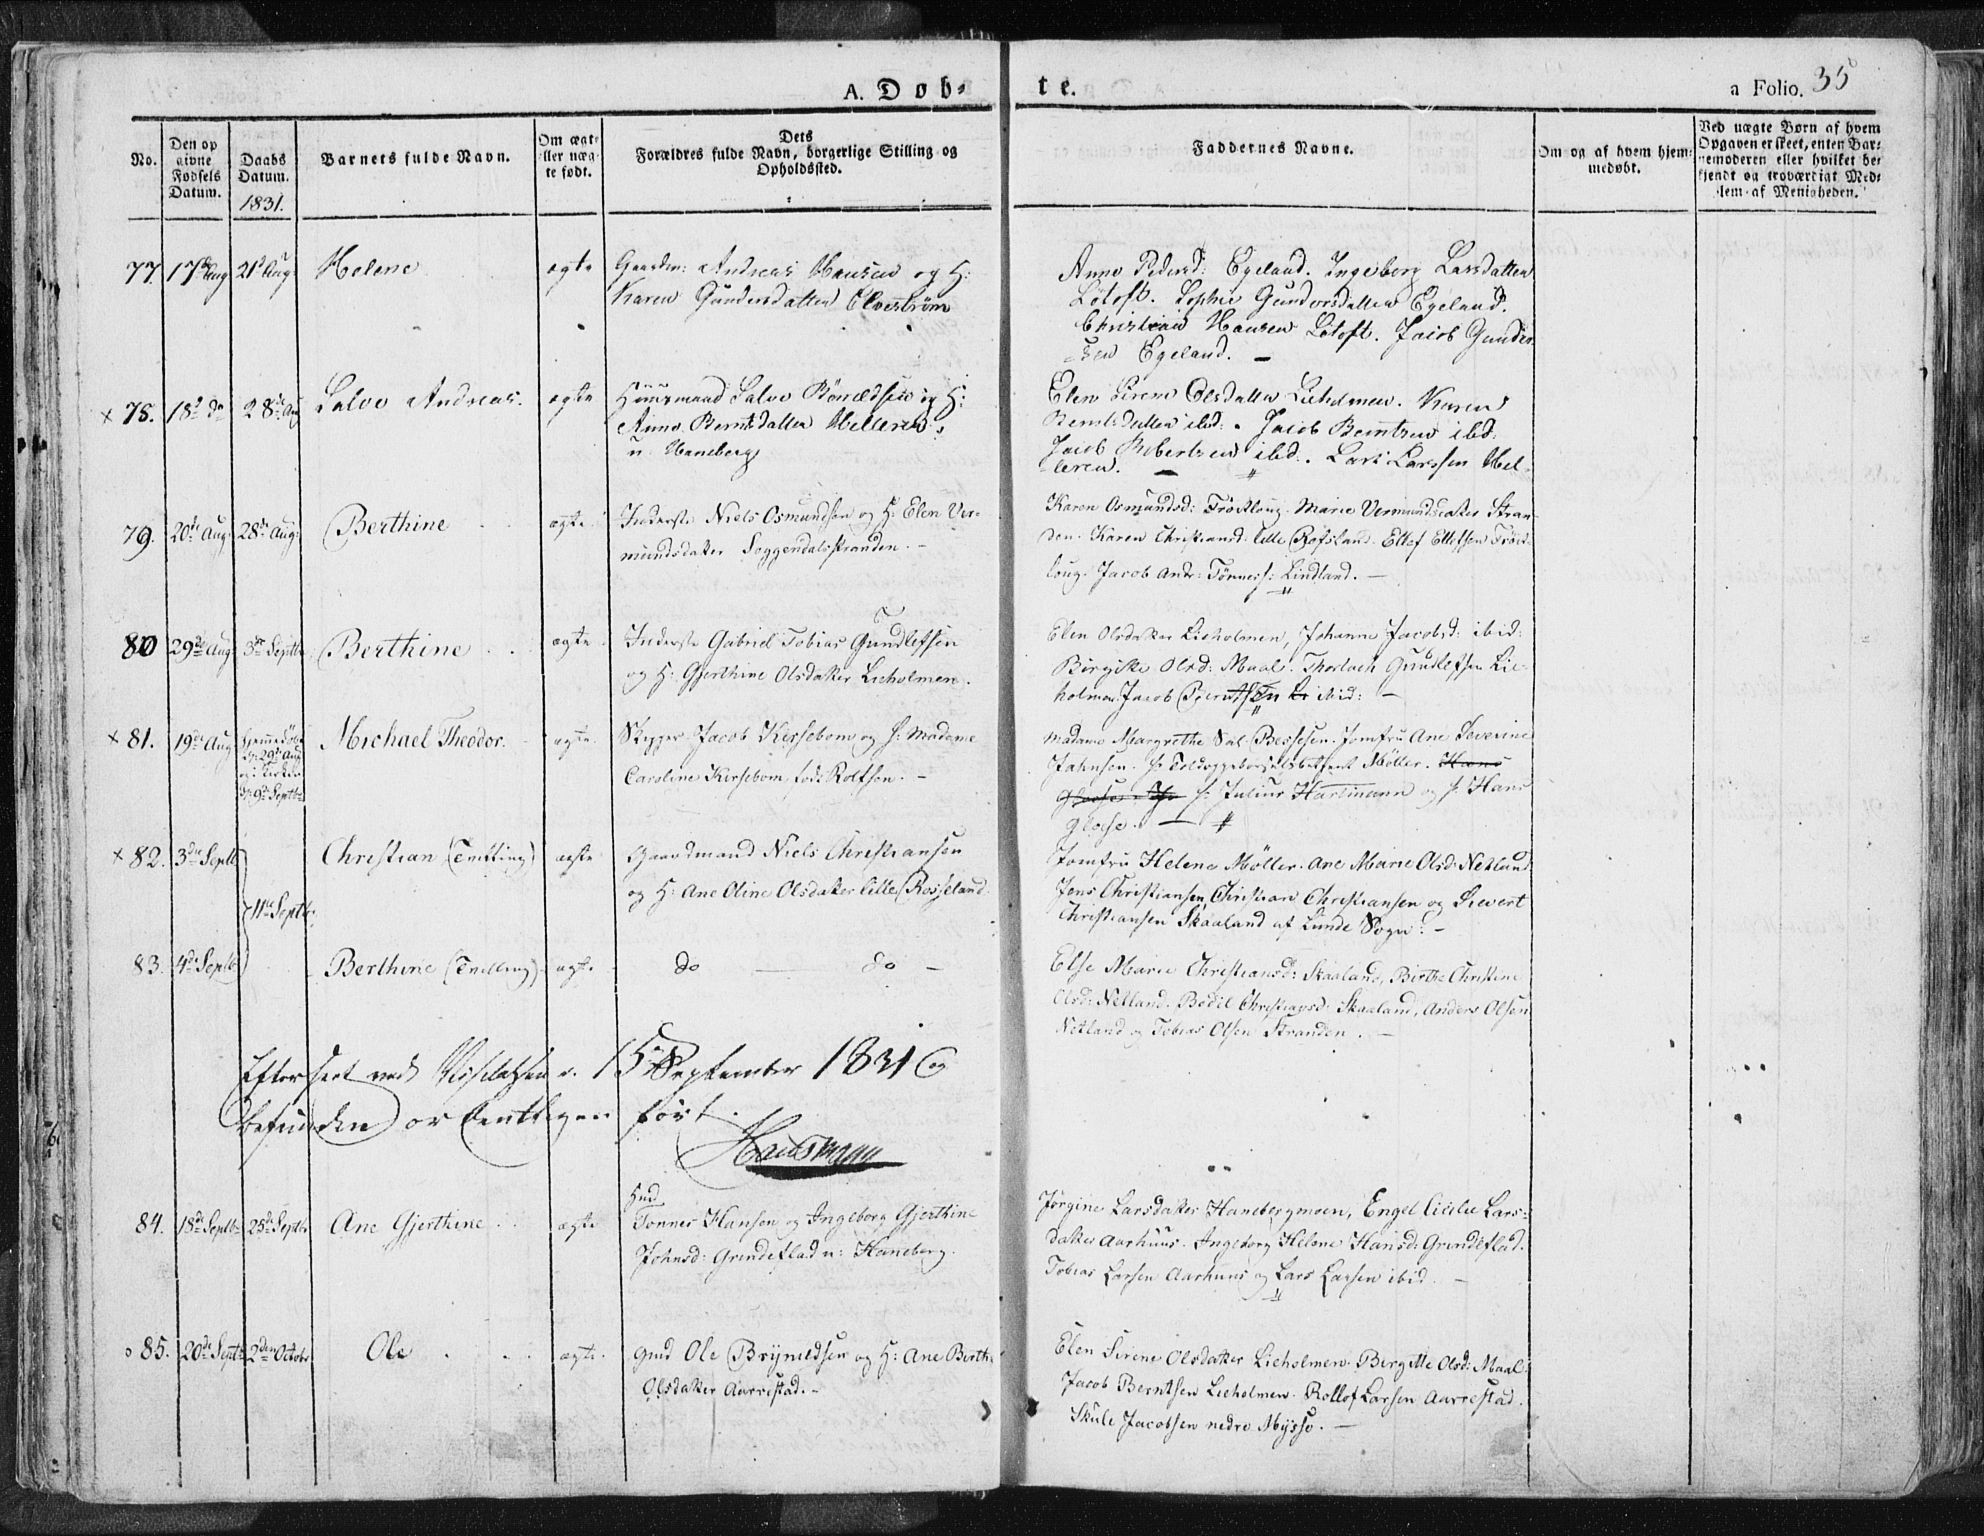 A. Døb-
te.
a Folio. 35
No.
Den opgivne Fødsels Datum.
Daabs Datum.
1831.
Barnets fulde Navn.
Om ægte eller uægte født.
Dets
Forældres fulde Navn, borgerlige Stilling og
Opholdssted.
Faddernes Navne.
Om og af hvem hjemmedøbt.
Ved uægte Børn af hvem
Opgaven er skeet, enten Bar-
nemoderen eller hvilket be-
kjendt og troværdigt Med-
lem af Menigheden.
77. 17de Aug 21d Aug: Helene ægte Gaardm: Andreas Hansen og H:
Karen Gundersdatter Elvestrøm
Anne Pedersd: Egeland. Ingeborg Larsdatter
Løtoft. Sophie Gundersdatter Egeland.
Christian Hansen Løtoft. Jacob Gunder-
sen Egeland. –
x 78. 18d do 28de Aug Salve Andreas. ægte Huusmand Salve Bønreldsen og H:
Anne Berntsdatter Helleren
u: Haneberg
Elen Sirene Olsdatter Lieholmen. Karen
Berntsdatter ibid: . Jacob Berntsen ibd:
Jacob Robertsen ibd: . Lars Larssen Hel-
leren. –
79. 20de Aug: 28de Aug: Berthine ægte Inderste Niels Osmundsen og H: Elen Ver-
mundsdatter Soggendalsstranden. –
Karen Osmundsd: Frøitlaug. Marie Vermundsdatter Stran-
den. Karen Christiansd: lille Rofsland. Ellef Ellefsen Frøit-
loug. Jacob Andr: Tønness: Lindland. –
80 29de Aug 3de Septbr Berthine ægte Inderste Gabriel Tobias Gundlefsen
og H: Gjerthine Olsdatter Lieholmen.
Elen Olsdatter Lieholmen, Johanne Jacobsd: ibid:
Birgitte Olsd: Maal. Thorlach Gundlefsen Lie-
holmen Jacob Berntsen ibid: –
x 81. 19de Aug Hjemmedøbt
d: 29de Aug
og i Kirken
d: 9de Septbr
Michael Theodor. ægte Skipper Jacob Kirsebom og H: Madame
Caroline Kirsebom, fød: Rolfsen. –
Madame Margrethe Sal. Bessesen. Jomfru Ane Severine
Jahnsen. Hr Toldoppebørselsbetjent Møller. Hans
Gloese Hr Hr: Julius Hartmann og Hr: Hans
Gloese. –
x 82. 3die Septb Christian (Tvilling) ægte Gaardmand Niels Christiansen
og H: Ane Oline Olsdatter lille Rosseland
11te Septbr:
Jomfru Helene Møller. Ane Marie Olsd: Netland
Jens Christiansen, Christian Christiansen og Sievert
Christiansen Skaaland af Lunde Sogn. –
83. 4de Septb Berthine (Tvilling) ægte do – do –
Else Marie Christiansd: Skaaland, Birthe Christine
Olsd: Netland. Bodil Christiansd: Skaaland, Anders Olsen
Netland og Tobias Olsen Stranden. –
Efterseet ved Visitatsen d. 15 September 1831 og
befunden ordentligen ført.
Hausmann
84. 18de Septbr 25de Septbr Ane Gjerthine ægte Hmd
Tønnes Hansen og Ingeborg Gjerthine
Johnsd: Grindeflad u: Haneberg.
Jørgine Larsdatter Hanebergmoen, Engel Cicilie Lars-
datter Aarhuus. Ingeborg Helene Hansd: Grindeflad.
Tobias Larsen Aarhuus og Lars Larsen ibid. –
o 85. 20de Septb 2den Octobr Ole ægte. Gmd Ole Brynildsen og H: Ane Berthe
Olsdatter Aarrestad. –
Elen Sirene Olsdatter Lieholmen. Birgitte Olsd: Maal.
Jacob Berntsen Lieholmen. Rollof Larsen Aarrestad.
Skule Jacobsen nedre Mysse. –